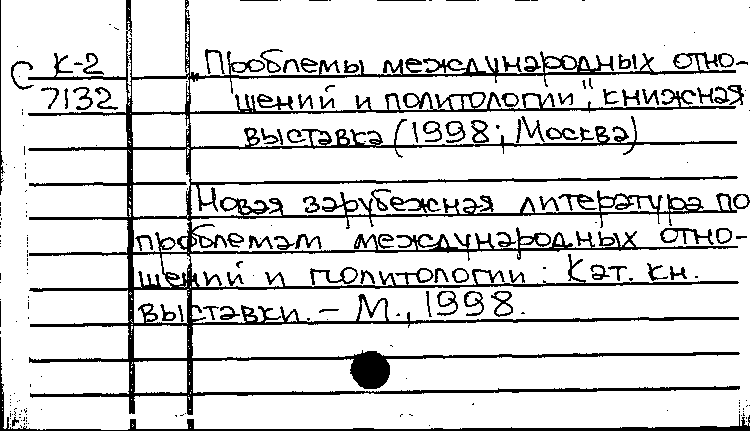 С К-2 „Проблемы международных отно-
7132 шений и политологии", книжная
выставка (1998; Москва)
Новая зарубежная литература по
проблемам международных отно-
шений и политологии: Кат. кн.
выставки. – М., 1998.